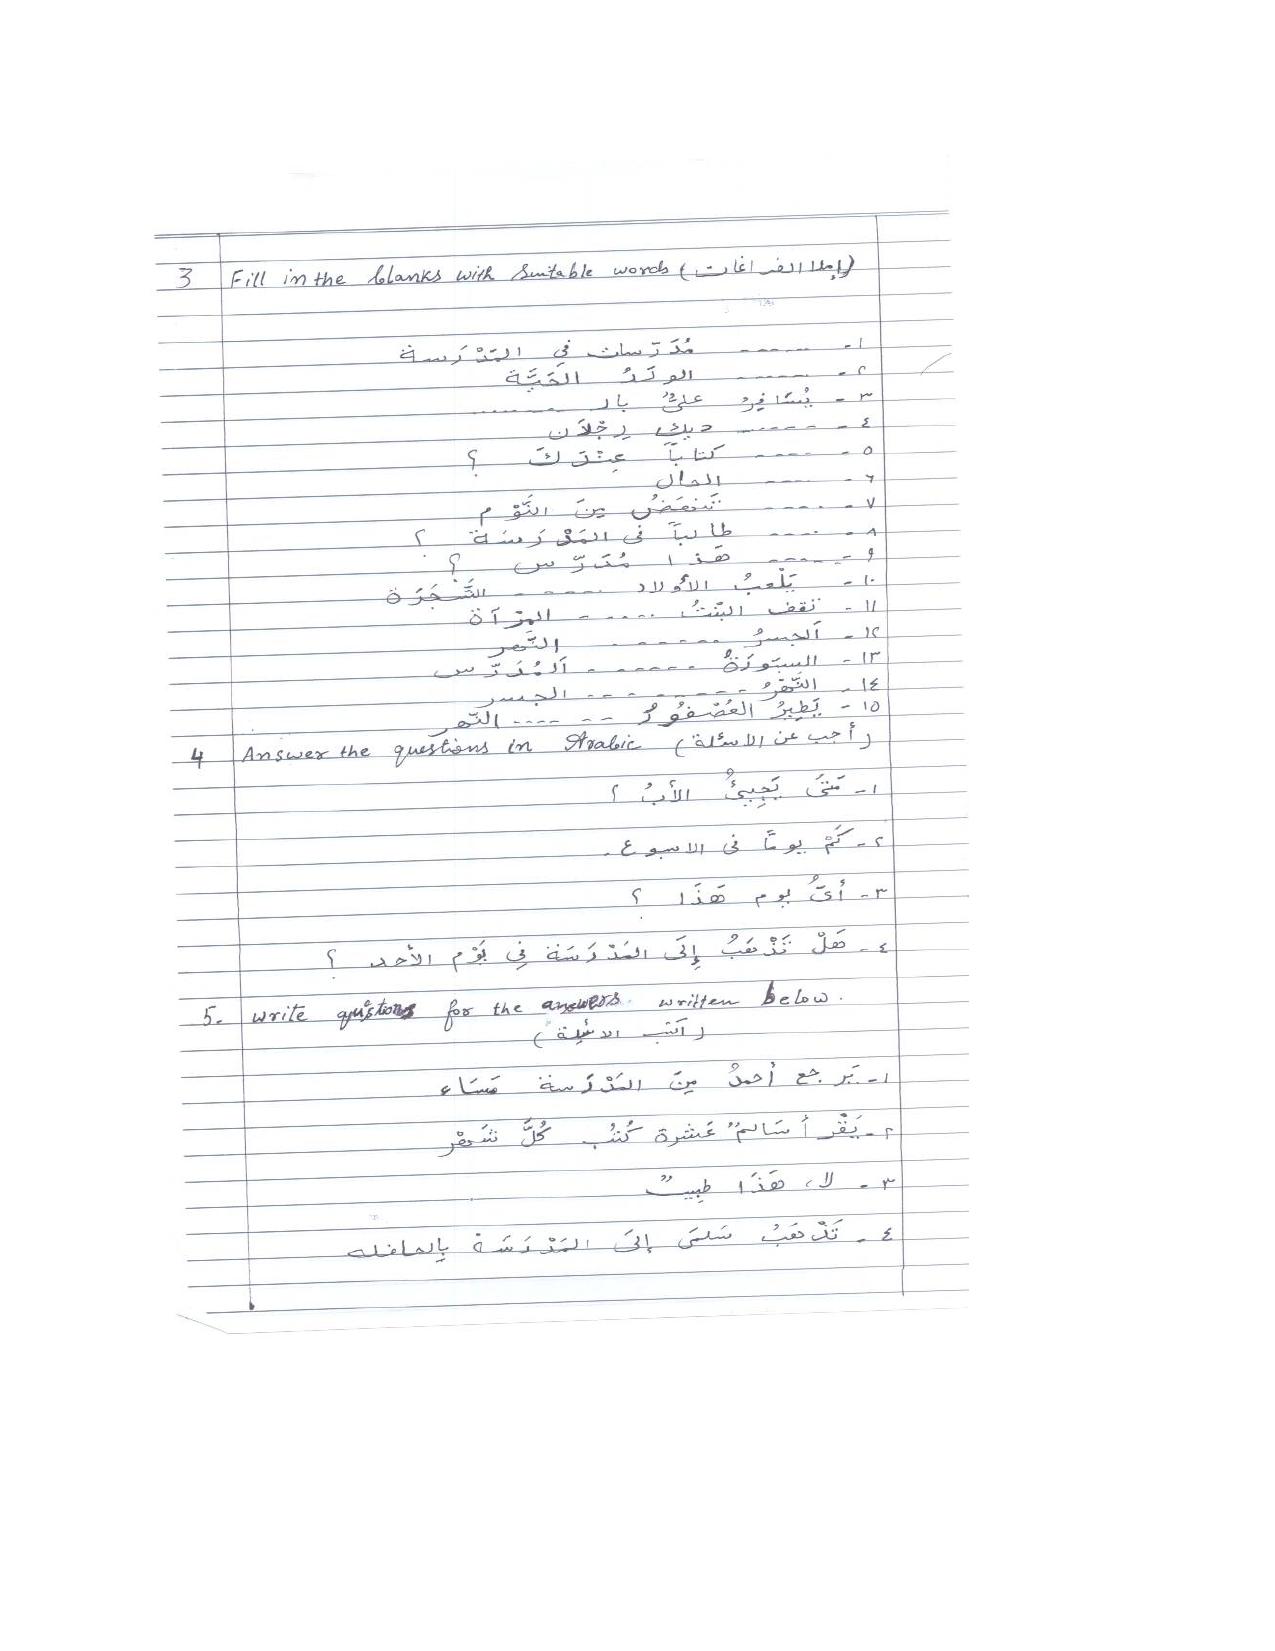 3 Fill in the blanks with suitable words (إملا الفراغات)
١- ------ مُدَرّسات في المَدْرَسة
٢- ------ الولَدُ الحَيَّة
٣- يُسَافِرُ عليٌّ بالـ ------
٤- ------ ديك رِجْلَان
٥- ------ كتاباً عِنْدَكَ ؟
٦- ------ الحال
٧- ------ تَنهَضُ مِنَ النَّوْم
٨- ------ طالباً في المَدْرَسَة ؟
٩- ------ هَذا مُدَرّس ؟
١٠- يَلْعبُ الأولاد ------ الشَّجَرَة
١١- تقف البِنْتُ ------ المِرْآة
١٢- اَلجسرُ ------ النَّهر
١٣- السبّورَةُ ------ اَلمُدَرّس
١٤- النَّهْرُ ------ الجسر
١٥- يَطِيرُ العُصْفُورُ ------ النّهر
4 Answer the questions in Arabic (أجب عن الاسئلة)
١- مَتَى يَجِيئُ الأبُ ؟
٢- كَمْ يومًا في الاسبوع.
٣- أىُّ يوم هَذَا ؟
٤- هَلْ تَذْهَبُ إِلَى المَدْرَسَة فِي يَوْم الأحد ؟
5. Write questions for the answers written below.
(اكتب الاسْئِلة)
١- يَرجع أحمدُ مِنَ المَدْرَسة مَسَاء
٢- يَقْرأ سَالمٌ عَشرة كُتُب كُلَّ شَهْر
٣- لا، هَذَا طبيبٌ
٤- تَذْهَبُ سَلمَى إِلَى المَدْرَسَة بِالحافله